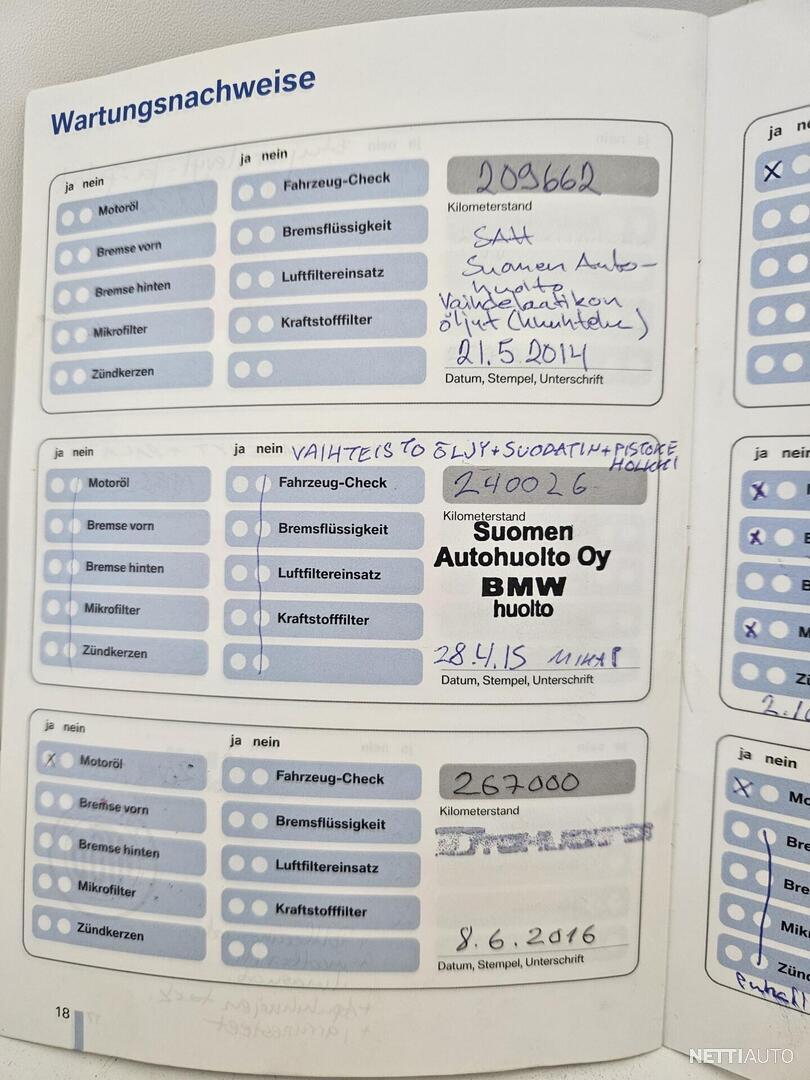 Wartungsnachweise
ja nein
ja nein
Motoröl
Fahrzeug-Check
209662
Bremse vorn
Bremsflüssigkeit
Kilometerstand
SAH
Bremse hinten
Luftfiltereinsatz
Suomen Auto-
huolto
Mikrofilter
Kraftstofffilter
Vaihdelaatikon
öljyt (huuhtelu)
Zündkerzen
21.5.2014
Datum, Stempel, Unterschrift
ja nein
ja nein
VAIHTEISTO ÖLJY+SUODATIN+PISTOKE
HOLKKI
Motoröl
Fahrzeug-Check
240026
Kilometerstand
Bremse vorn
Bremsflüssigkeit
Suomen
Autohuolto Oy
Bremse hinten
Luftfiltereinsatz
BMW
huolto
Mikrofilter
Kraftstofffilter
Zündkerzen
28.4.15
Datum, Stempel, Unterschrift
ja nein
ja nein
X
Motoröl
Fahrzeug-Check
267000
Kilometerstand
Bremse vorn
Bremsflüssigkeit
Bremse hinten
Luftfiltereinsatz
Mikrofilter
Kraftstofffilter
Zündkerzen
8.6.2016
Datum, Stempel, Unterschrift
18
ja
X
ja nein
X
X
X
ja nein
X
NETTIAUTO